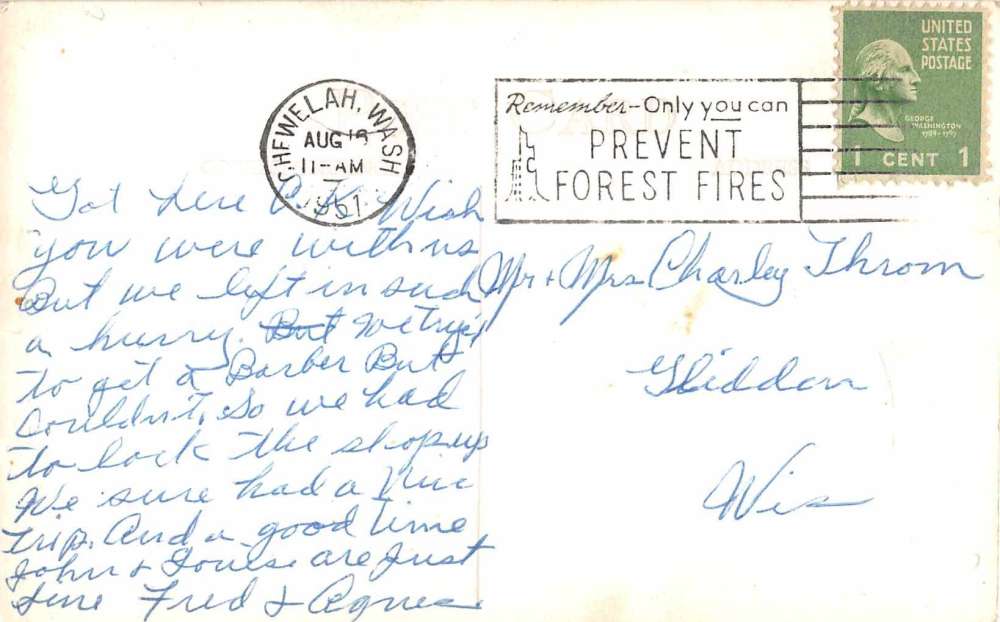 UNITED
STATES
POSTAGE
GEORGE
WASHINGTON
1789-1797
1 CENT 1
CHEWELAH, WASH
AUG
11-AM
1951
Remember-Only you can
PREVENT
FOREST FIRES
Got here O.K. Wish
you were with us
But we left in such
a hurry. But We try'd
to get a Barber But
Couldn't. So we had
to lock the shop up
We sure had a Nice
trip. And a good time
John & Louise are Just
fine Fred & Agnes
Mr + Mrs Charley Throm
Glidden
Wis